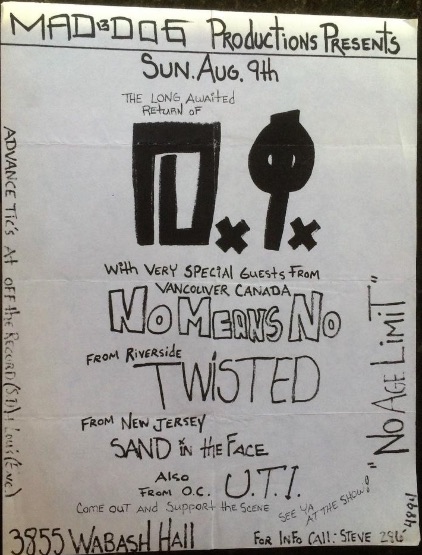 MAD13DOG PRODUCTIONS PRESENTS
SUN. AUG. 9th
THE LONG AWAITED
RETURN OF
D.I.
With VERY SPECIAL GUESTS FROM
VANCOUVER CANADA
NO MEANS NO
FROM RIVERSIDE
TWISTED
FROM NEW JERSEY
SAND in the FACE
ALSO
FROM O.C. U.T.I.
COME OUT AND SUPPORT the SCENE
SEE YA
AT THE SHOW!
3855 WABASH HALL
FOR INFO CALL: STEVE 286
ADVANCE TIC'S At OFF the RECORD (S.D.)
"NO AGE LIMIT"